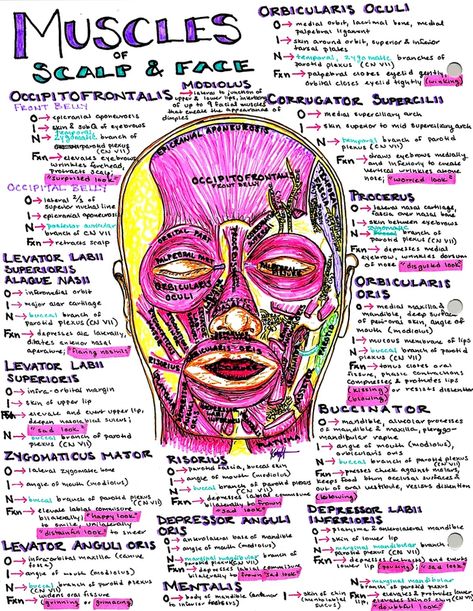 MUSCLES
OF
SCALP & FACE
OCCIPITOFRONTALIS
FRONT BELLY
O→ epicranial aponeurosis
I→ skin & sub Q of eyebrows
N→ temporal,
zygomatic branch of
parotid plexus (CN VII)
Fxn→ elevates eyebrows,
wrinkles forehead,
protracts scalp
"surprised look"
OCCIPITAL BELLY
O→ lateral 2/3 of
superior nuchal line
I→ epicranial aponeurosis
N→ posterior auricular
branch of (CN VII)
Fxn→ retracts scalp
LEVATOR LABII
SUPERIORIS
ALAQUE NASII
O→ inferomedial orbit
I→ major alar cartilage
N→ buccal branch of
parotid plexus (CN VII)
Fxn→ depresses ala laterally,
dilates anterior nasal
aperature, "flaring nostrils"
LEVATOR LABII
SUPERIORIS
O→ infra-orbital margin
I→ skin of upper lip
elevate and evert upper lip,
deepen nasolabial sulcus;
"sad look"
N→ buccal branch of parotid
plexus (CN VII)
ZYGOMATICUS MATOR
O→ lateral zygomatic bone
I→ angle of mouth (modiolus)
N→ buccal branch of parotid
plexus (CN VII)
Fxn→ elevate labial commissure
bilaterally "happy look"
to smile, unilaterally
"distainful look" to sneer
LEVATOR ANGULI ORIS
O→ infraorbital maxilla (canine
fossa)
I→ angle of mouth (modiolus)
N→ buccal branch of parotid
plexus (CN VII)
Fxn→ widens oral fissure
(grinning or grimacing)
MODIOLUS
→ lateral to junction of
upper & lower lips, insertion
of up to 9 facial muscles
that create the appearance of
dimples
EPICRANIAL APONEUROSIS
OCCIPITOFRONTALIS
FRONT BELLY
ORBITAL PART
PALPEBRAL PART
ORBICULARIS
OCULI
ORBICULARIS ORIS
RISORIUS
RISORIUS
O→ parotid fascia, buccal skin
I→ angle of mouth (modiolus)
N→ buccal branch of parotid
plexus (CN VII)
Fxn→ depresses labial commissure
bilaterally to frown
"sad look"
DEPRESSOR ANGULI
ORIS
O→ anterolateral base of mandible
I→ angle of mouth (modiolus)
N→ marginal mandibular branch of
parotid plexus (CN VII)
Fxn→ depresses labial commissure
bilaterally to frown "sad look"
MENTALIS
I→ skin of chin
(mentolabial
sulcus)
ORBICULARIS OCULI
O→ medial orbit, lacrimal bone, medial
palpebral ligament
I→ skin around orbit, superior & inferior
tarsal plates
N→ temporal, zygomatic branches of
parotid plexus (CN VII)
Fxn→ palpebral closes eyelid gently,
orbital closes eyelid tightly (winking)
CORRUGATOR SUPERCILII
O→ medial supercillary arch
I→ skin superior to mid supercillary arch
N→ temporal branch of parotid
plexus (CN VII)
Fxn→ draws eyebrows medially
and inferiorly to create
vertical wrinkles above
nose; "worried look"
PROCERUS
O→ lateral nasal cartilage,
fascia over nasal bone
I→ skin between eyebrows
N→
branch of
parotid plexus (CN VII)
Fxn→ depresses medial
eyebrow, wrinkles dorsum
of nose "disgusted look"
ORBICULARIS
ORIS
O→ medial maxilla &
mandible, deep surface
of peri-oral skin, angle of
mouth (modiolus)
I→ mucous membrane of lips
N→ buccal branch of parotid
plexus (CN VII)
Fxn→ tonus closes oral
fissure, phasic contractions
compresses & protrudes lips
(kissing) or resists distention
(blowing)
BUCCINATOR
O→ mandible, alveolar processes
of mandible & maxilla, pterygo-
mandibular raphe
I→ angle of mouth (modiolus),
orbicularis oris
N→ buccal branch of parotid
plexus (CN VII)
Fxn→ presses cheek against molars,
keeps food btwn occlusal surfaces &
out of oral vestibule, resists distention
(blowing)
DEPRESSOR LABII
INFERIORIS
O→ platysma & anterolateral mandible
I→ skin of lower lip
N→ marginal mandibular branch of
parotid plexus (CN VII)
Fxn→ depresses and everts
lower lip (pouting); "sad look"
N→ marginal mandibular
branch of parotid plexus (CN VII)
Fxn→ elevates and protrudes lower
lip, elevates skin of chin
"doubtful look"